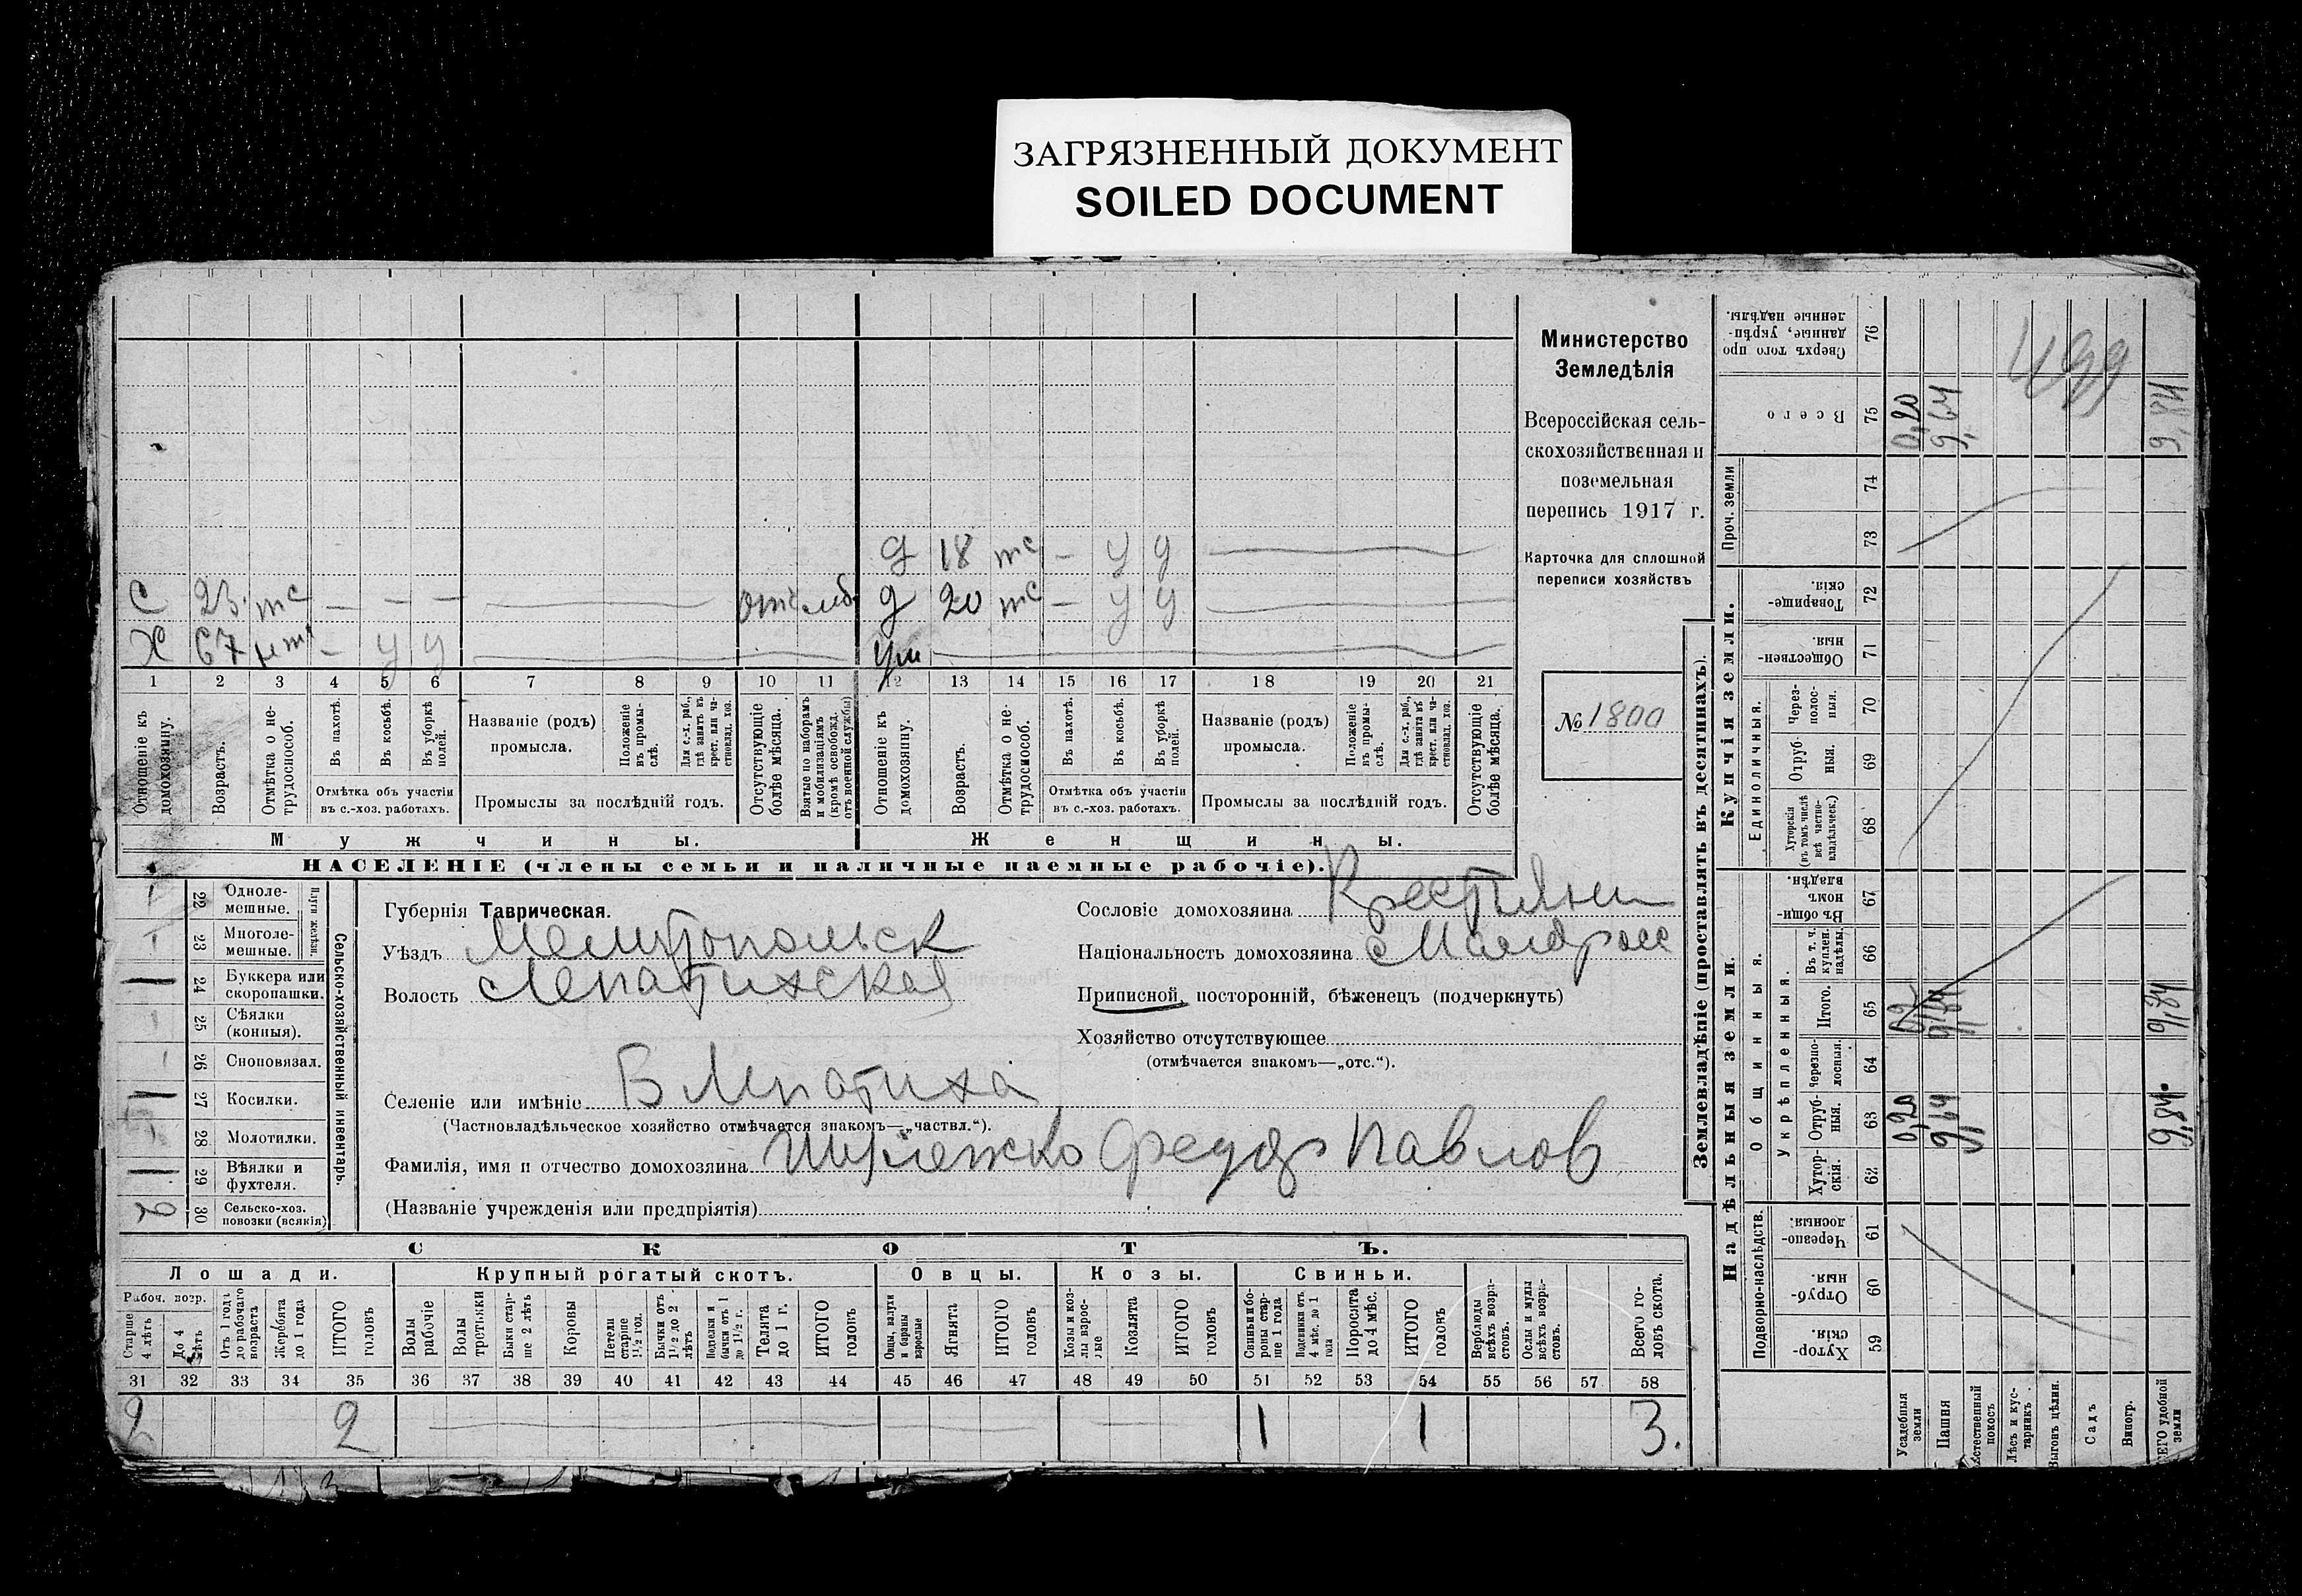 ЗАГРЯЗНЕННЫЙ ДОКУМЕНТ
SOILED DOCUMENT
Министерство
Земледѣлія
Всероссійская сель-
скохозяйственная и
поземельная
перепись 1917 г.
Карточка для сплошной
переписи хозяйствъ
№ 1800
д 18 — у у
С 23 — — —
д 20 — у у
Х 67 — у у
1 2 3 4 5 6 7 8 9 10 11 12 13 14 15 16 17 18 19 20 21
Отношеніе къ домохозяину.
Возрастъ.
Отмѣтка о не-трудоспособ.
Въ пахотѣ.
Въ косьбѣ.
Въ уборкѣ полей.
Названіе (родъ) промысла.
Положеніе въ промы-слѣ.
Для с.-х. раб., гдѣ занятъ въ крест. или ча-стновлад. хоз.
Отсутствующіе болѣе мѣсяца.
Взятые по наборамъ и мобилизаціямъ (кромѣ освобожд. отъ военной службы)
Отношеніе къ домохозяину.
Возрастъ.
Отмѣтка о не-трудоспособ.
Въ пахотѣ.
Въ косьбѣ.
Въ уборкѣ полей.
Названіе (родъ) промысла.
Положеніе въ промы-слѣ.
Для с.-х. раб., гдѣ занята въ крест. или ча-стновлад. хоз.
Отсутствующіе болѣе мѣсяца.
Отмѣтка объ участіи въ с.-хоз. работахъ.
Промыслы за послѣдній годъ.
Отмѣтка объ участіи въ с.-хоз. работахъ.
Промыслы за послѣдній годъ.
Мужчины.
Женщины.
НАСЕЛЕНІЕ (члены семьи и наличные наемные рабочіе).
Сельско-хозяйственный инвентарь.
Плуги желѣзн.
22 Однолемешные.
23 Многолемешные.
24 Буккера или скоропашки.
25 Сѣялки (конныя).
26 Сноповязал.
27 Косилки.
28 Молотилки.
29 Вѣялки и фухтеля.
2 30 Сельско-хоз. повозки (всякія)
Губернія Таврическая.
Уѣздъ Мелитопольск
Волость Лепатихская
Сословіе домохозяина
Національность домохозяина Малоросс
Приписной, посторонній, бѣженец (подчеркнуть)
Хозяйство отсутствующее
(отмѣчается знакомъ—„отс.“).
Селеніе или имѣніе В Лпатиха
(Частновладѣльческое хозяйство отмѣчается знакомъ—„частвл.“).
Фамилія, имя и отчество домохозяина Федор Павлов
(Названіе учрежденія или предпріятія)
СКОТЪ.
Лошади. Крупный рогатый скотъ. Овцы. Козы. Свиньи.
Рабоч. возр.
Старше 4 лѣтъ
До 4 лѣтъ
Отъ 1 года до рабочаго возраста
Жеребята до 1 года
ИТОГО головъ
Волы рабочіе
Волы третьяки
Быки стар-ше 2 лѣтъ
Коровы
Нетели старше 1½ год.
Бычки отъ 1½ до 2 лѣтъ
Телята до 1 г.
ИТОГО головъ
Овцы, валухи и бараны взрослые
Ягнята
ИТОГО головъ
Козы и коз-лы взрос-лые
Козлята
ИТОГО головъ
Свиньи и бо-ровы стар-ше 1 года
Подсвинки отъ 4 мѣс. до 1 года
Поросята до 4 мѣс.
ИТОГО головъ
Верблюды всѣхъ возра-стовъ.
Ослы и мулы всѣхъ возра-стовъ.
Всего го-ловъ скота.
31 32 33 34 35 36 37 38 39 40 41 42 43 44 45 46 47 48 49 50 51 52 53 54 55 56 57 58
2 2 1 1 3.
Землевладѣніе (проставлять въ десятинахъ).
Купчія земли.
Надѣльныя земли.
Сверхъ того про данные, укрѣп-ленные надѣлы. 76
Всего 75
Проч. земли 74 73
Товарище-скія. 72
Обществен-ныя. 71
Единоличныя.
Черезполосныя. 70
Отрубныя. 69
Хуторскія (въ томъ числѣ всѣ частно-владѣльческ.) 68
Общинныя.
Въ общин-номъ владѣн. 67
Укрѣпленныя.
Въ т. ч. куплен. надѣлы. 66
Итого. 65
Черезпо-лосныя. 64
Отруб-ныя. 63
Хутор-скія. 62
Подворно-наслѣдств.
Черезпо-лосныя. 61
Отруб-ныя. 60
Хутор-скія. 59
Усадебныя земли
Пашня
Естественный покосъ
Лѣсъ и кус-тарникъ
Выгонъ цѣлин.
Садъ
Виногр.
499
0,20
9,64
9,84
9,84
0,20
9,64
9,84